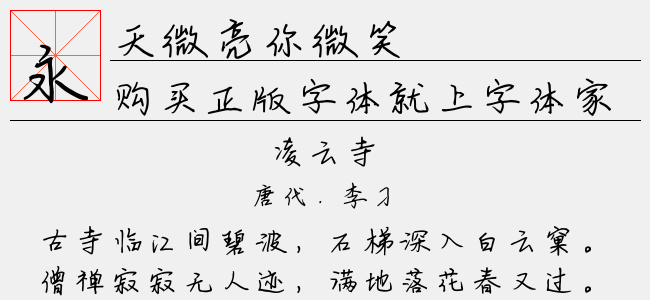 永
天微亮你微笑
购买正版字体就上字体家
凌云寺
唐代.李刁
古寺临江间碧波，石梯深入白云窠。
僧禅寂寂无人迹，满地落花春又过。